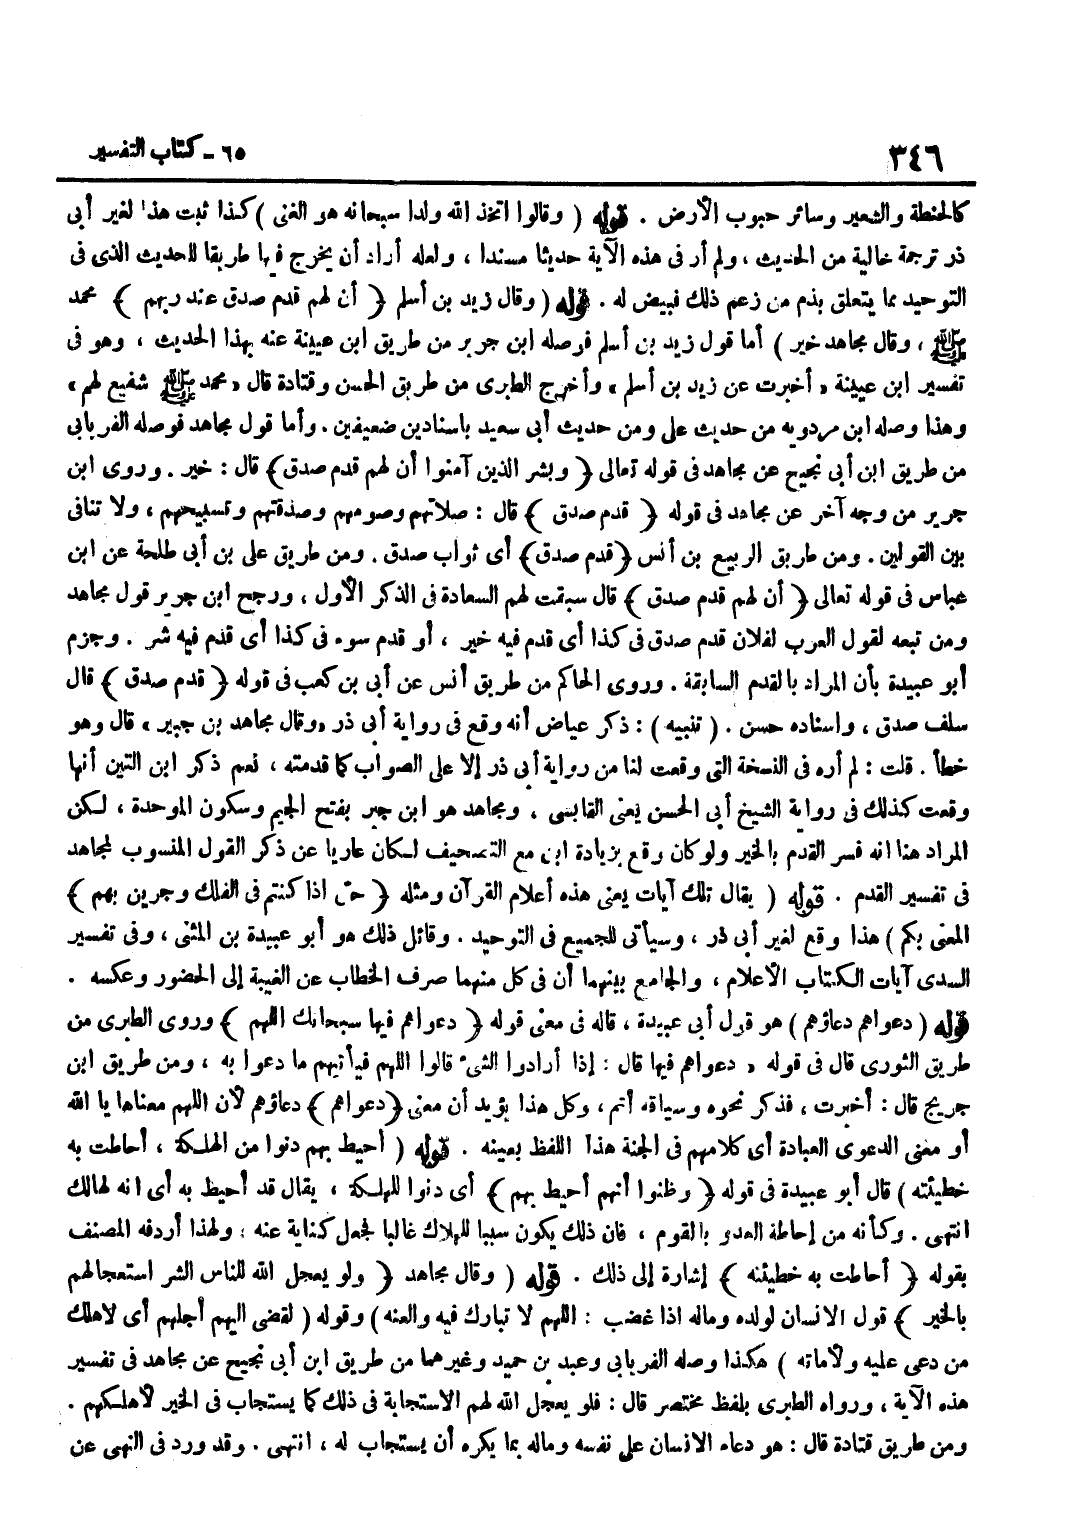 ٣٤٦
٦٥ - كتاب التفسير
كالحنطة والشعير وسائر حبوب الأرض . قوله ( وقالوا اتخذ الله ولدا سبحانه هو الغنى ) كذا ثبت هذا لغير أبى
ذر ترجمة خالية من الحديث ، ولم أر فى هذه الآية حديثا مسندا ، ولعله أراد أن يخرج فيها طريقا للحديث الذى فى
التوحيد مما يتعلق بذم من زعم ذلك فبيض له . قوله ( وقال زيد بن أسلم ﴿ أن لهم قدم صدق عند ربهم ﴾ محمد
ﷺ ، وقال مجاهد خير ) أما قول زيد بن أسلم فوصله ابن جرير من طريق ابن عيينة عنه بهذا الحديث ، وهو فى
تفسير ابن عيينة « أخبرت عن زيد بن أسلم » وأخرج الطبرى من طريق الحسن وقتادة قال « محمد ﷺ شفيع لهم »
وهذا وصله ابن مردويه من حديث على ومن حديث أبى سعيد باسنادين ضعيفين . وأما قول مجاهد فوصله الفريابى
من طريق ابن أبى نجيح عن مجاهد فى قوله تعالى ﴿ وبشر الذين آمنوا أن لهم قدم صدق ﴾ قال : خير . وروى ابن
جرير من وجه آخر عن مجاهد فى قوله ﴿ قدم صدق ﴾ قال : صلاتهم وصومهم وصدقتهم وتسبيحهم ، ولا تنافى
بين القولين . ومن طريق الربيع بن أنس ﴿ قدم صدق ﴾ أى ثواب صدق . ومن طريق على بن أبى طلحة عن ابن
عباس فى قوله تعالى ﴿ أن لهم قدم صدق ﴾ قال سبقت لهم السعادة فى الذكر الأول ، ورجح ابن جرير قول مجاهد
ومن تبعه لقول العرب لفلان قدم صدق فى كذا أى قدم فيه خير ، أو قدم سوء فى كذا أى قدم فيه شر . وجزم
أبو عبيدة بأن المراد بالقدم السابقة . وروى الحاكم من طريق أنس عن أبى بن كعب فى قوله ﴿ قدم صدق ﴾ قال
سلف صدق ، واسناده حسن . ( تنبيه ) : ذكر عياض أنه وقع فى رواية أبى ذر «وقال مجاهد بن جبير» قال وهو
خطأ . قلت : لم أره فى النسخة التى وقعت لنا من رواية أبى ذر إلا على الصواب كما قدمته ، نعم ذكر ابن التين أنها
وقعت كذلك فى رواية الشيخ أبى الحسن يعنى القابسى ، ومجاهد هو ابن جبر بفتح الجيم وسكون الموحدة ، لكن
المراد هنا انه فسر القدم بالخير ولو كان وقع بزيادة ابن مع التصحيف لكان عاريا عن ذكر القول المنسوب لمجاهد
فى تفسير القدم . قوله ( يقال تلك آيات يعنى هذه أعلام القرآن ومثله ﴿ حتى اذا كنتم فى الفلك وجرين بهم ﴾
المعنى بكم ) هذا وقع لغير أبى ذر ، وسيأتى للجميع فى التوحيد . وقائل ذلك هو أبو عبيدة بن المثنى ، وفى تفسير
السدى آيات الكتاب الأعلام ، والجامع بينهما أن فى كل منهما صرف الخطاب عن الغيبة إلى الحضور وعكسه .
قوله ( دعواهم دعاؤهم ) هو قول أبى عبيدة ، قاله فى معنى قوله ﴿ دعواهم فيها سبحانك اللهم ﴾ وروى الطبرى من
طريق الثورى قال فى قوله « دعواهم فيها قال : إذا أرادوا الشىء قالوا اللهم فيأتيهم ما دعوا به ، ومن طريق ابن
جريج قال : أخبرت ، فذكر نحوه وسياقه أتم ، وكل هذا يؤيد أن معنى ﴿ دعواهم ﴾ دعاؤهم لأن اللهم معناها يا الله
أو معنى الدعوى العبادة أى كلامهم فى الجنة هذا اللفظ بعينه . قوله ( أحيط بهم دنوا من الهلكة ، أحاطت به
خطيئته ) قال أبو عبيدة فى قوله ﴿ وظنوا أنهم أحيط بهم ﴾ أى دنوا للهلكة ، يقال قد أحيظ به أى انه لهالك
انتهى . وكأنه من إحاطة العدو بالقوم ، فان ذلك يكون سببا للهلاك غالبا فجعل كناية عنه ، ولهذا أردفه المصنف
بقوله ﴿ أحاطت به خطيئته ﴾ إشارة إلى ذلك . قوله ( وقال مجاهد ﴿ ولو يعجل الله للناس الشر استعجالهم
بالخير ﴾ قول الانسان لولده وماله اذا غضب : اللهم لا تبارك فيه والعنه ) وقوله ( لقضى اليهم أجلهم أى لاهلك
من دعى عليه ولأماته ) هكذا وصله الفريابى وعبد بن حميد وغيرهما من طريق ابن أبى نجيح عن مجاهد فى تفسير
هذه الآية ، ورواه الطبرى بلفظ مختصر قال : فلو يعجل الله لهم الاستجابة فى ذلك كما يستجاب فى الخير لأهلكهم .
ومن طريق قتادة قال : هو دعاء الانسان على نفسه وماله بما يكره أن يستجاب له ، انتهى . وقد ورد فى النهى عن